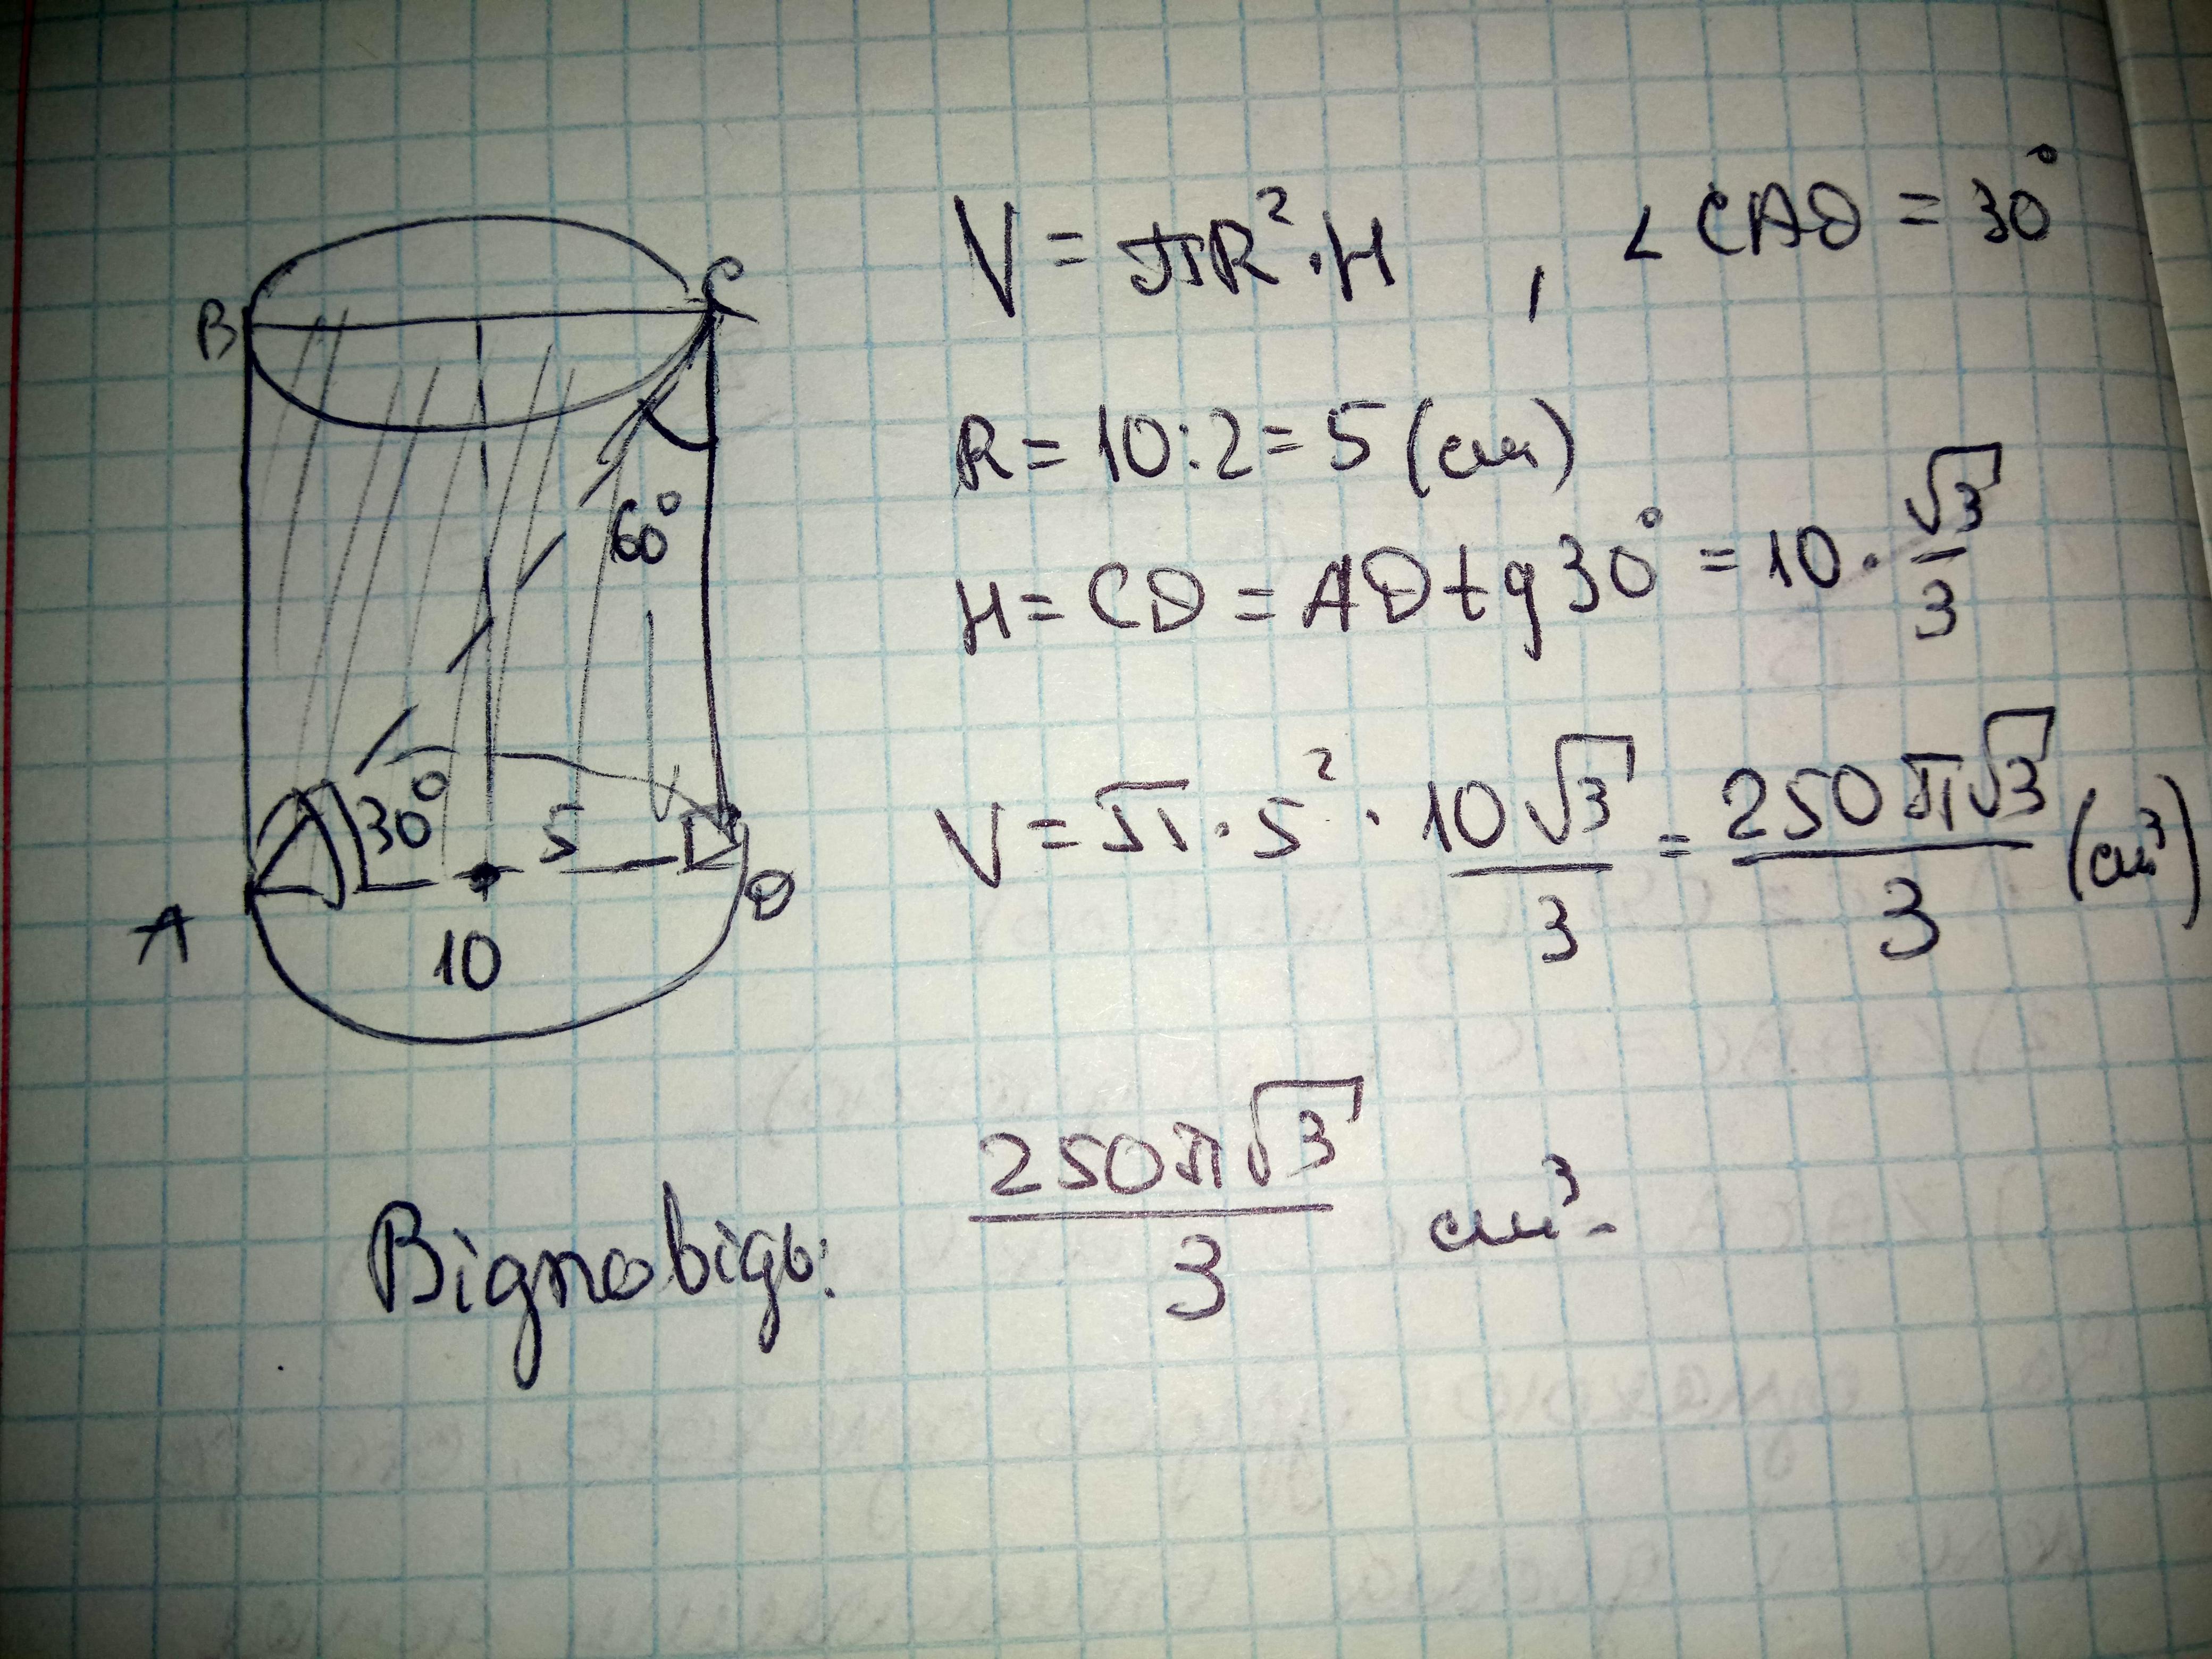 B
C
60°
30°
5
A
D
10
V = πR² · H , ∠CAD = 30°
R = 10:2 = 5 (см)
H = CD = AD tg 30° = 10 · √3/3
V = π · 5² · 10√3/3 = 250π√3/3 (см³)
Відповідь: 250π√3/3 см³.